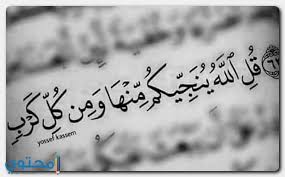 ٦٣ قُلِ ٱللَّهُ يُنَجِّيكُم مِّنْهَا وَمِن كُلِّ كَرْبٍ
yossef kassem
محتوى